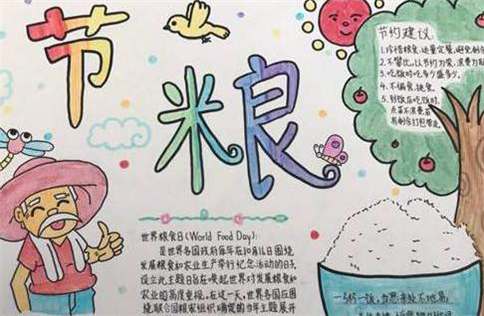 节粮
节约建议
1、珍惜粮食,适量定餐,避免剩
2、不攀比,以节约为荣,浪费为耻
3、吃饭时吃多少盛多少。
4、不偏食、挑食。
5、到饭店吃饭时,
点菜不浪费,若
有剩余打包带走。
世界粮食日(World Food Day):
是世界各国政府每年在10月16日围绕
发展粮食和农业生产举行纪念活动的日子
设立此主题日旨在唤起世界对发展粮食和
农业的高度重视。在这一天,世界各国应围
绕联合国粮农组织确定的当年主题展开
一粥一饭,当思来处不易;